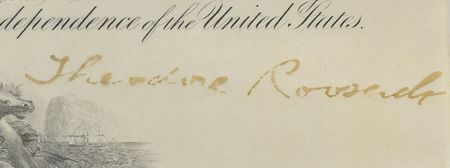 dependence of the United States.
Theodore Roosevelt